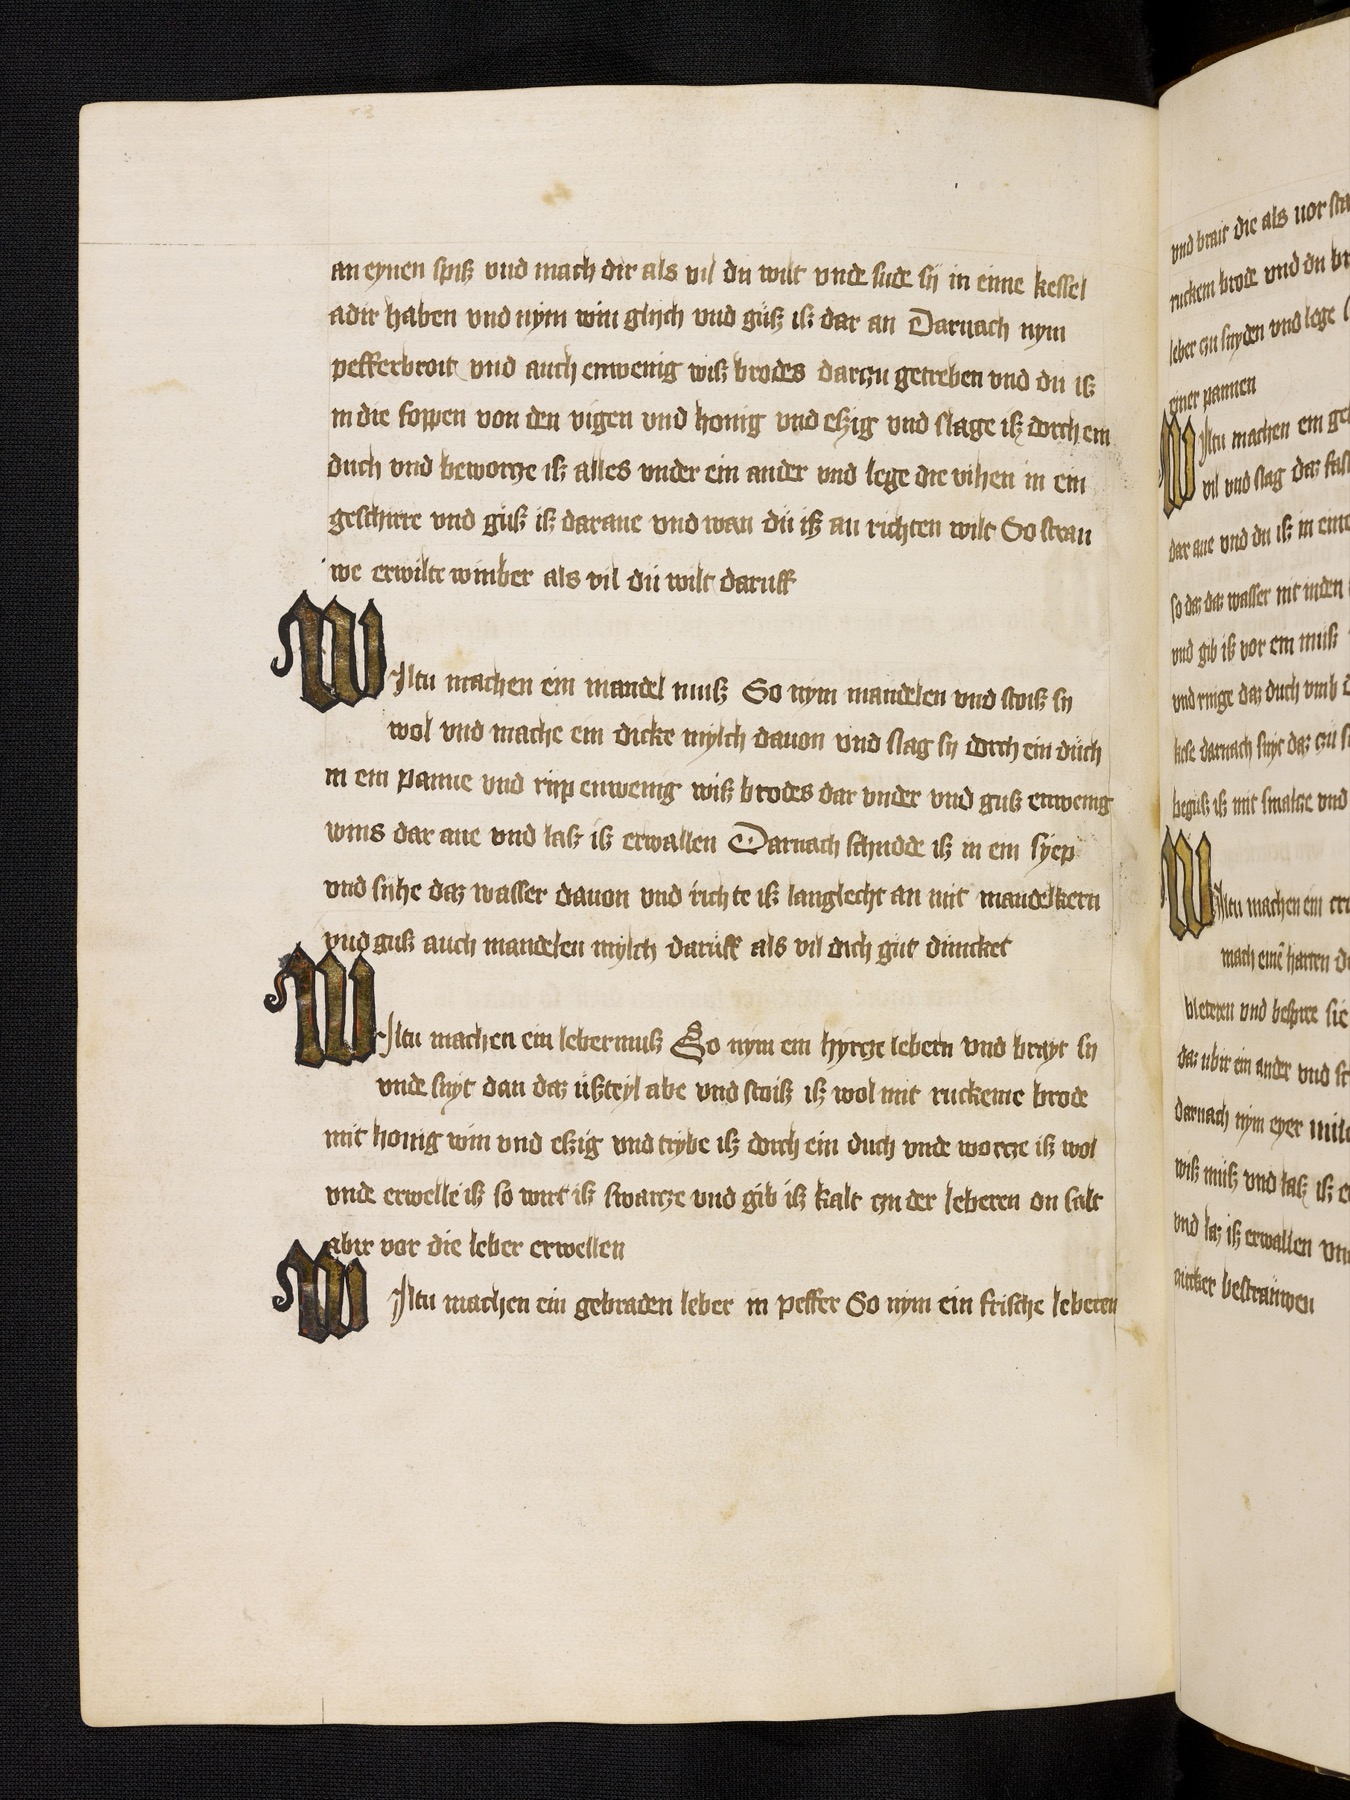 an eynen spiß vnd mach dir als vil du wilt vnde sude sÿ in eime kessel
adir haben vnd nym win glych vnd güß iß dar an Darnach nym
pefferbroit vnd auch enwenig wiß brodes darczu getreben vnd du iß
in die soppen von den vigen vnd honig vnd eßig vnd slage iß dorch ein
duch vnd beworcze iß alles vnder ein ander vnd lege die vihen in ein
geschirre vnd güß iß darane vnd wan dü iß an richten wilt So strau
we erwilte winber als vil dü wilt daruff
Wiltu machen ein mandel muß So nym mandelen vnd stoiß sy
wol vnd mache ein dicke mylch dauon vnd slag sy dorch ein düch
in ein panne vnd riip enwenig wiß brodes dar vnder vnd guß enwenig
wins dar ane vnd laß iß erwallen Darnach schudde iß in ein syep
vnd sihe daz wasser dauon vnd richte iß langlecht an mit mandelkern
vnd guß auch mandelen mylch darüff als vil dich güt duncket
Wiltu machen ein lebermuß So nym ein hyrcze lebern vnd brayt sy
vnde snyt dan daz üßteyl abe vnd stoiß iß wol mit ruckeme brode
mit honig win vnd eßig vnd trybe iß dorch ein duch vnde worcze iß wol
vnde erwelle iß so wirt iß swarcze vnd gib iß kalt czu der leberen on salt
abir vor die leber erwellen
Wiltu machen ein gebraden leber in peffer So nym ein frische leberen
vnd brait die als uor
ruckem brode vnd du
leber czu snyden vnd lege
einer pannen
Wiltu machen ein
vil vnd slag daz
dar ane vnd du iß in
so daz daz wasser nit
vnd gib iß vor ein muß
vnd ringe daz duch vmb
kese darnach snyt daz czü
begüß iß mit smalcze vnd
Wiltu machen ein
mach einē harten
bleteren vnd
daz ubir ein ander vnd
darnach nym eyer
wiß müß vnd laß iß
vnd laz iß erwallen
czucker bestrauwen